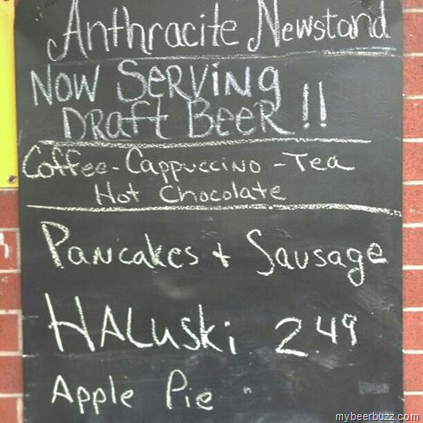 Anthracite Newstand
Now Serving
Draft Beer!!
Coffee-Cappuccino-Tea
Hot Chocolate
Pancakes + Sausage
HALuski 2.49
Apple Pie
mybeerbuzz.com